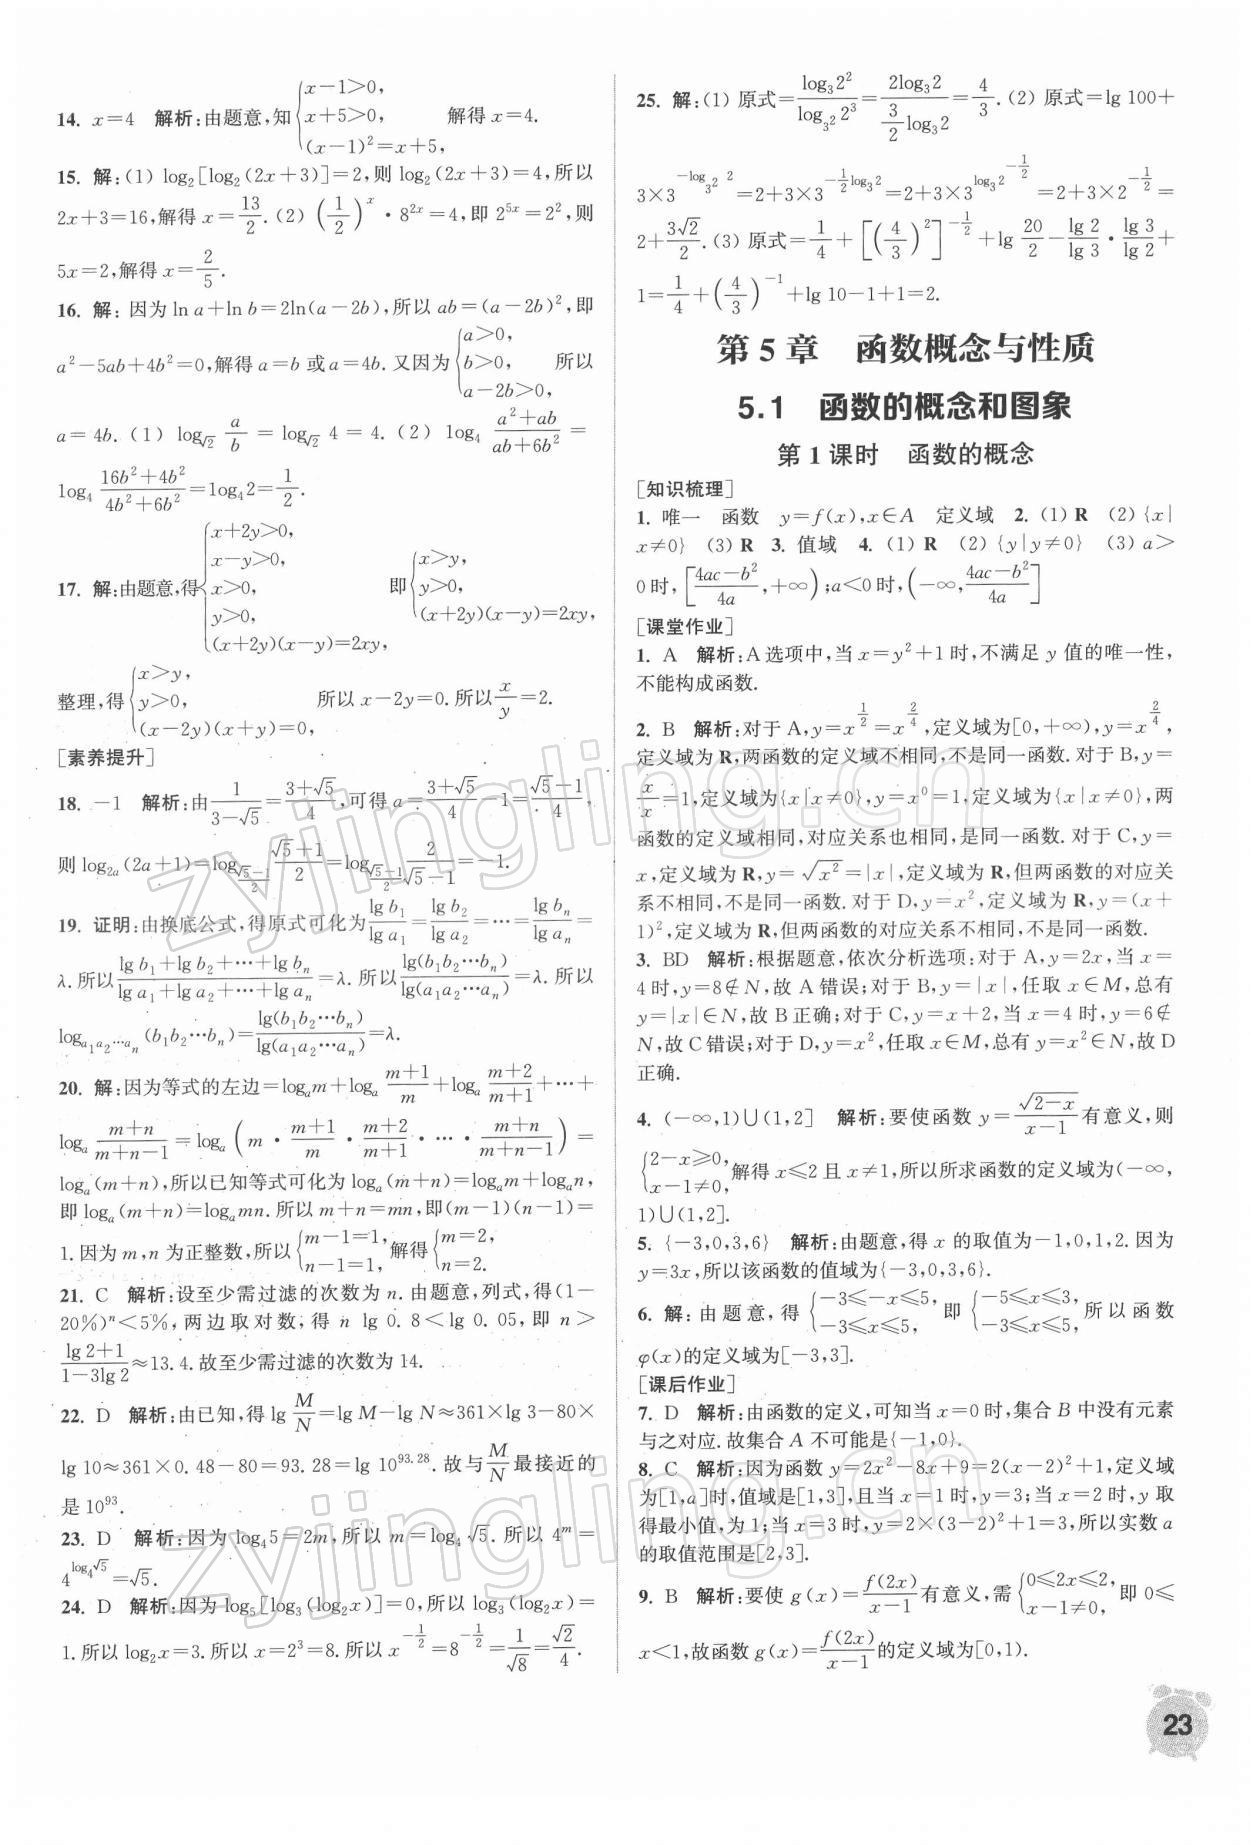 14. x=4 解析:由题意,知{x-1>0, x+5>0, (x-1)²=x+5, 解得 x=4.
15. 解:(1) log₂[log₂(2x+3)]=2,则 log₂(2x+3)=4,所以
2x+3=16,解得 x=13/2.(2) (1/2)^x·8^{2x}=4,即 2^{5x}=2²,则
5x=2,解得 x=2/5.
16. 解:因为 ln a+ln b=2ln(a-2b),所以 ab=(a-2b)²,即
a²-5ab+4b²=0,解得 a=b 或 a=4b.又因为{a>0, b>0, a-2b>0, 所以
a=4b.(1) log_{√2} a/b=log_{√2} 4=4.(2) log₄ (a²+ab)/(ab+6b²)=
log₄ (16b²+4b²)/(4b²+6b²)=log₄2=1/2.
17. 解:由题意,得{x+2y>0, x-y>0, x>0, y>0, (x+2y)(x-y)=2xy, 即{x>y, y>0, (x+2y)(x-y)=2xy,
整理,得{x>y, y>0, (x-2y)(x+y)=0, 所以 x-2y=0.所以 x/y=2.
[素养提升]
18. -1 解析:由 1/(3-√5)=(3+√5)/4,可得 a=(3+√5)/4-1=(√5-1)/4.
则 log_{2a}(2a+1)=log_{(√5-1)/2} (√5+1)/2=log_{(√5-1)/2} 2/(√5-1)=-1.
19. 证明:由换底公式,得原式可化为 lg b₁/lg a₁=lg b₂/lg a₂=…=lg bₙ/lg aₙ=
λ.所以 (lg b₁+lg b₂+…+lg bₙ)/(lg a₁+lg a₂+…+lg aₙ)=λ.所以 lg(b₁b₂…bₙ)/lg(a₁a₂…aₙ)=λ.所以
log_{a₁a₂…aₙ}(b₁b₂…bₙ)=lg(b₁b₂…bₙ)/lg(a₁a₂…aₙ)=λ.
20. 解:因为等式的左边=logₐm+logₐ (m+1)/m+logₐ (m+2)/(m+1)+…+
logₐ (m+n)/(m+n-1)=logₐ(m·(m+1)/m·(m+2)/(m+1)·…·(m+n)/(m+n-1))=
logₐ(m+n),所以已知等式可化为 logₐ(m+n)=logₐm+logₐn,
即 logₐ(m+n)=logₐmn.所以 m+n=mn,即(m-1)(n-1)=
1.因为 m,n 为正整数,所以{m-1=1, n-1=1, 解得{m=2, n=2.
21. C 解析:设至少需过滤的次数为 n.由题意,列式,得(1-
20%)ⁿ<5%,两边取对数,得 n lg 0.8<lg 0.05,即 n>
(lg 2+1)/(1-3lg 2)≈13.4.故至少需过滤的次数为 14.
22. D 解析:由已知,得 lg M/N=lg M-lg N≈361×lg 3-80×
lg 10≈361×0.48-80=93.28=lg 10^{93.28}.故与 M/N 最接近的
是 10⁹³.
23. D 解析:因为 log₄5=2m,所以 m=log₄√5.所以 4ᵐ=
4^{log₄√5}=√5.
24. D 解析:因为 log₅[log₃(log₂x)]=0,所以 log₃(log₂x)=
1.所以 log₂x=3.所以 x=2³=8.所以 x^{-1/2}=8^{-1/2}=1/√8=√2/4.
25. 解:(1) 原式=log₃2²/log_{3²}2³=2log₃2/((3/2)log₃2)=4/3.(2) 原式=lg 100+
3×3^{-log_{3²}2}=2+3×3^{-(1/2)log₃2}=2+3×3^{log₃2^{-1/2}}=2+3×2^{-1/2}=
2+3√2/2.(3) 原式=1/4+[(4/3)²]^{-1/2}+lg 20/2-lg 2/lg 3·lg 3/lg 2+
1=1/4+(4/3)^{-1}+lg 10-1+1=2.
第 5 章 函数概念与性质
5.1 函数的概念和图象
第 1 课时 函数的概念
[知识梳理]
1. 唯一 函数 y=f(x),x∈A 定义域 2. (1) R (2) {x|
x≠0} (3) R 3. 值域 4. (1) R (2) {y|y≠0} (3) a>
0时,[(4ac-b²)/4a,+∞);a<0时,(-∞,(4ac-b²)/4a]
[课堂作业]
1. A 解析:A选项中,当 x=y²+1时,不满足 y 值的唯一性,
不能构成函数.
2. B 解析:对于A,y=x^{1/2}=x^{2/4},定义域为[0,+∞),y=x^{2/4},
定义域为 R,两函数的定义域不相同,不是同一函数.对于B,y=
x/x=1,定义域为{x|x≠0},y=x⁰=1,定义域为{x|x≠0},两
函数的定义域相同,对应关系也相同,是同一函数.对于C,y=
x,定义域为 R,y=√x²=|x|,定义域为 R,但两函数的对应关
系不相同,不是同一函数.对于D,y=x²,定义域为 R,y=(x+
1)²,定义域为 R,但两函数的对应关系不相同,不是同一函数.
3. BD 解析:根据题意,依次分析选项:对于A,y=2x,当 x=
4时,y=8∉N,故A错误;对于B,y=|x|,任取 x∈M,总有
y=|x|∈N,故B正确;对于C,y=x+2,当 x=4时,y=6∉
N,故C错误;对于D,y=x²,任取 x∈M,总有 y=x²∈N,故D
正确.
4. (-∞,1)∪(1,2] 解析:要使函数 y=√(2-x)/(x-1)有意义,则
{2-x≥0, x-1≠0, 解得 x≤2且 x≠1,所以所求函数的定义域为(-∞,
1)∪(1,2].
5. {-3,0,3,6} 解析:由题意,得 x 的取值为-1,0,1,2.因为
y=3x,所以该函数的值域为{-3,0,3,6}.
6. 解:由题意,得{-3≤-x≤5, -3≤x≤5, 即{-5≤x≤3, -3≤x≤5, 所以函数
φ(x)的定义域为[-3,3].
[课后作业]
7. D 解析:由函数的定义,可知当 x=0时,集合 B 中没有元素
与之对应.故集合 A 不可能是{-1,0}.
8. C 解析:因为函数 y=2x²-8x+9=2(x-2)²+1,定义域
为[1,a]时,值域是[1,3],且当 x=1时,y=3;当 x=2时,y 取
得最小值,为1;当 x=3时,y=2×(3-2)²+1=3,所以实数 a
的取值范围是[2,3].
9. B 解析:要使 g(x)=f(2x)/(x-1)有意义,需{0≤2x≤2, x-1≠0, 即 0≤
x<1,故函数 g(x)=f(2x)/(x-1)的定义域为[0,1).
23
zyjingling.cn
zyjingling.cn